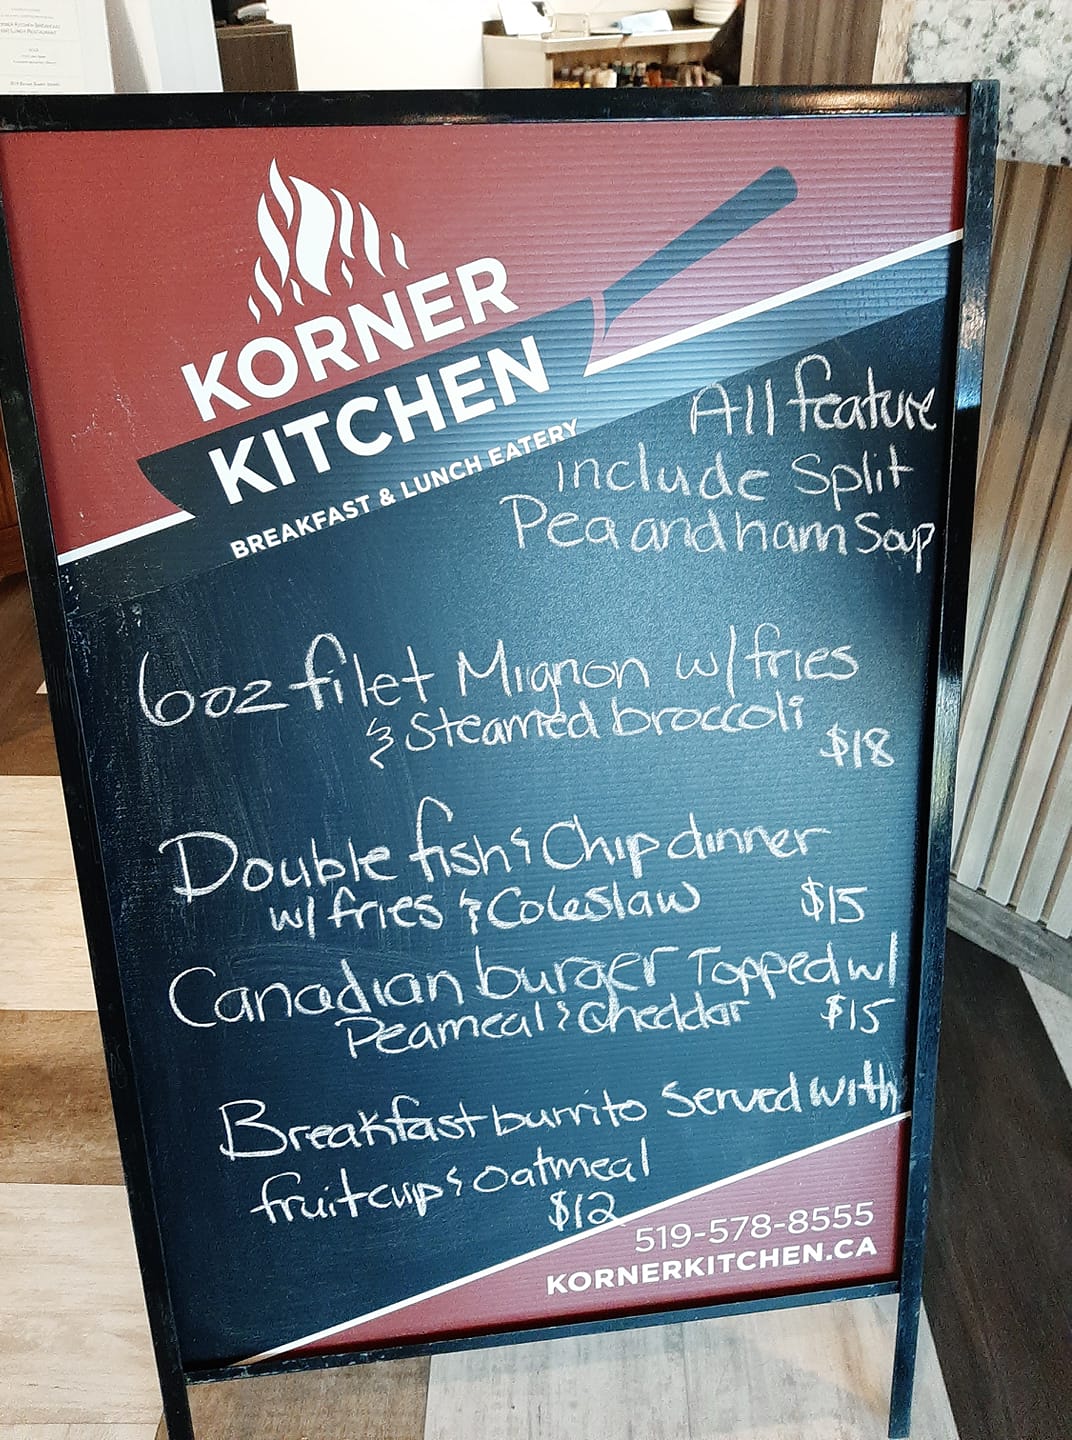 KORNER
KITCHEN
BREAKFAST & LUNCH EATERY
All feature
include Split
Pea and ham Soup
6oz filet Mignon w/ fries
& Steamed broccoli
$18
Double fish & Chip dinner
w/ fries & Coleslaw $15
Canadian burger Topped w/
Peameal & Cheddar $15
Breakfast burrito Served with
fruit cup & oatmeal
$12
519-578-8555
KORNERKITCHEN.CA